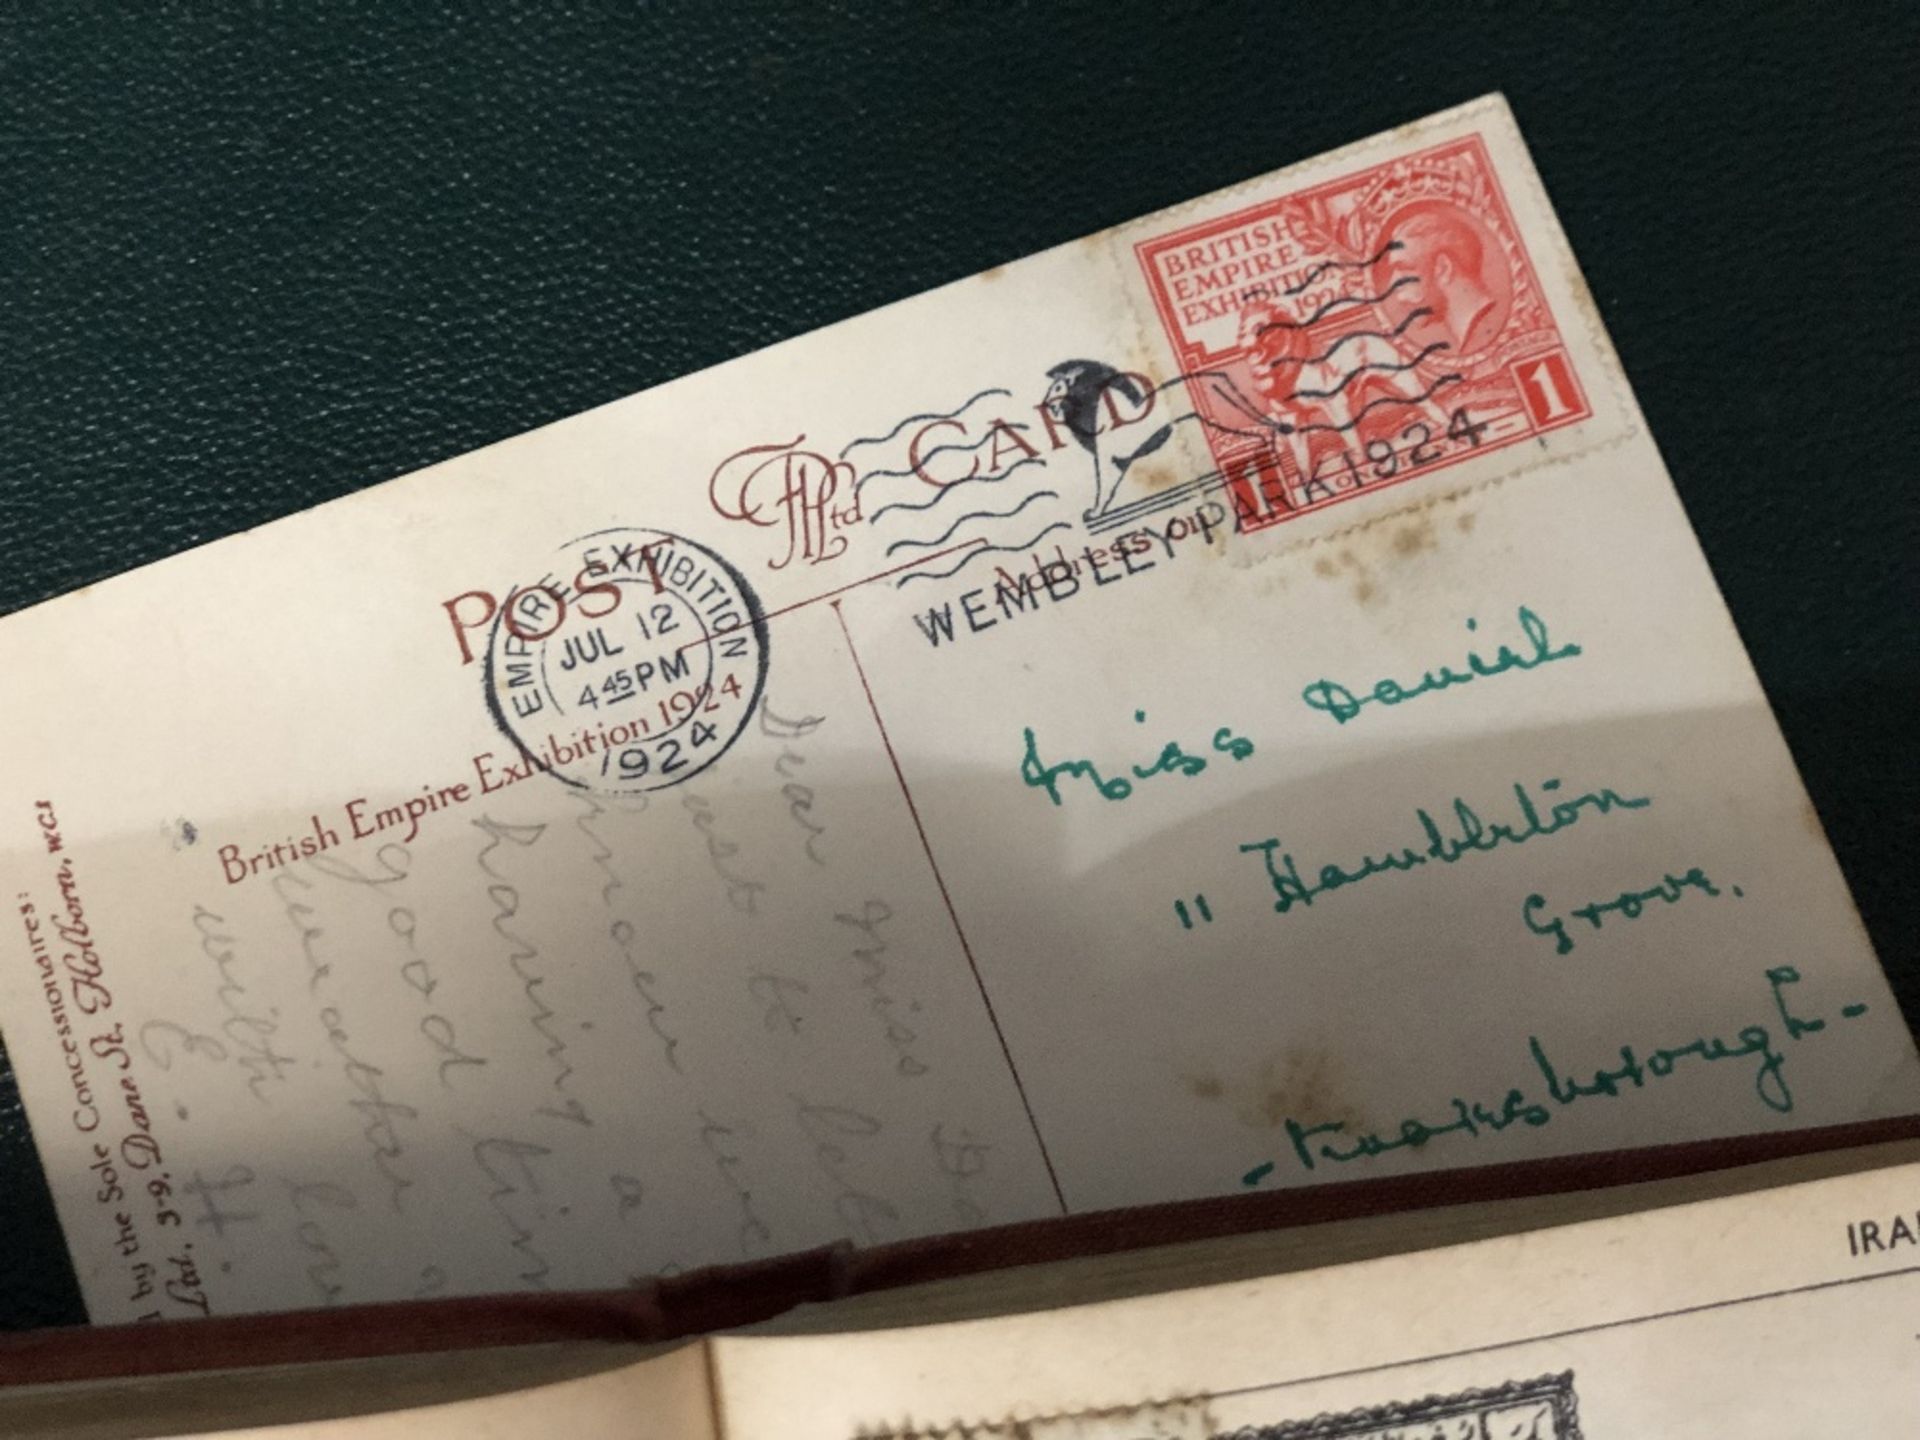 BRITISH
EMPIRE
EXHIBITION
1924
1
POST CARD
Ltd
WEMBLEY PARK 1924
Address on
EMPIRE EXHIBITION
JUL 12
4 45 PM
1924
British Empire Exhibition 1924
by the Sole Concessionaires:
Ltd. 5-9, Dane St. Holborn, WC1
Dear Miss Da
just to let
know we
having a
good tim
weather
with lov
E. H.
Miss Daniel
11 Hambleton
Grove.
- Knaresborough -
IRA